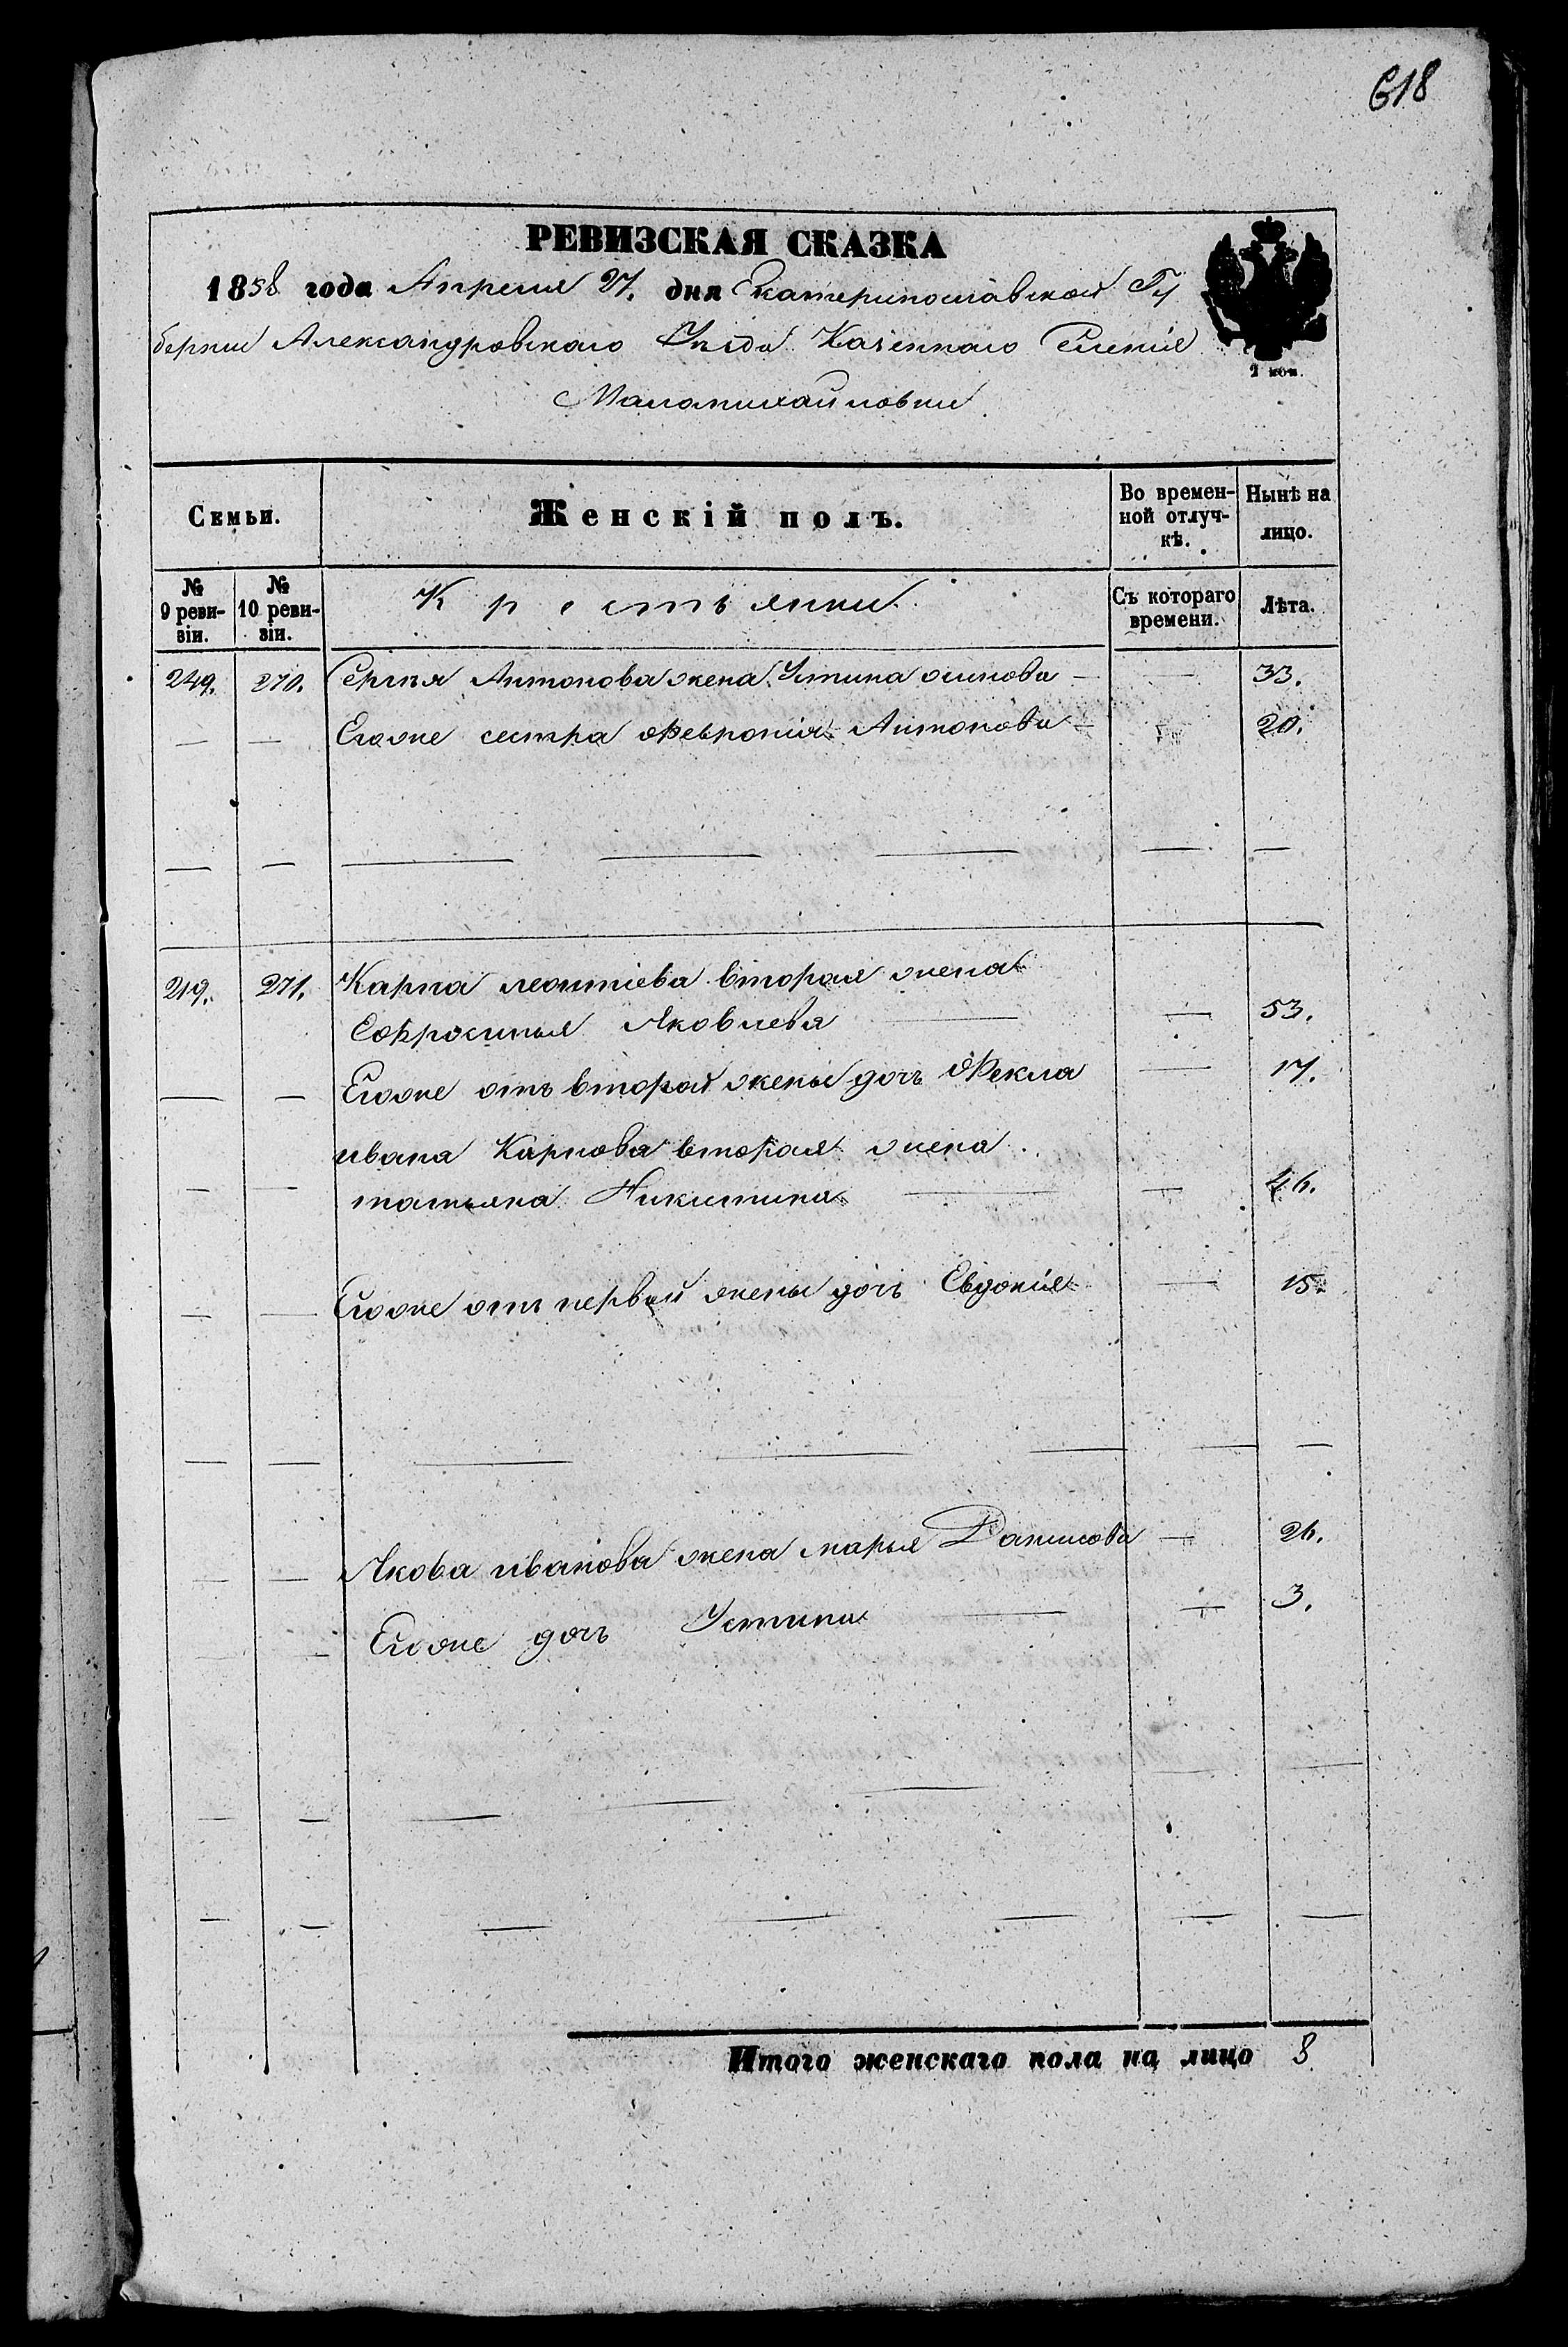 618
РЕВИЗСКАЯ СКАЗКА
1858 года Апреля 27. дня Екатеринославской Гу
бернии Александровскаго Уѣзда Казеннаго Селенія
2 коп.
Маломихайловки
Семьи. Женскій полъ. Во времен-ной отлуч-кѣ. Нынѣ на лицо.
№ 9 реви-зіи. № 10 реви-зіи. Крестьянки. Съ котораго времени. Лѣта.
249. 270. Сергѣя Антонова жена Устина осипова — — 33.
— — Егоже сестра Февронія Антонова — — 20.
— — — — — — —
249. 271. Карпа леонтіева вторая жена
Ефросинья Яковлева — — 53.
— — Егоже отъ второй жены дочь Фекла — 17.
ивана Карпова вторая жена
— — татьяна Никитина — — 46.
— — Егоже отъ первой жены дочь Евдокія — 15.
— — — — — — —
— — Якова иванова жена марья Данилова — 26.
— — Егоже дочь Устина — — 3.
— — — — — — —
— — — — — — —
Итого женскаго пола на лицо 8